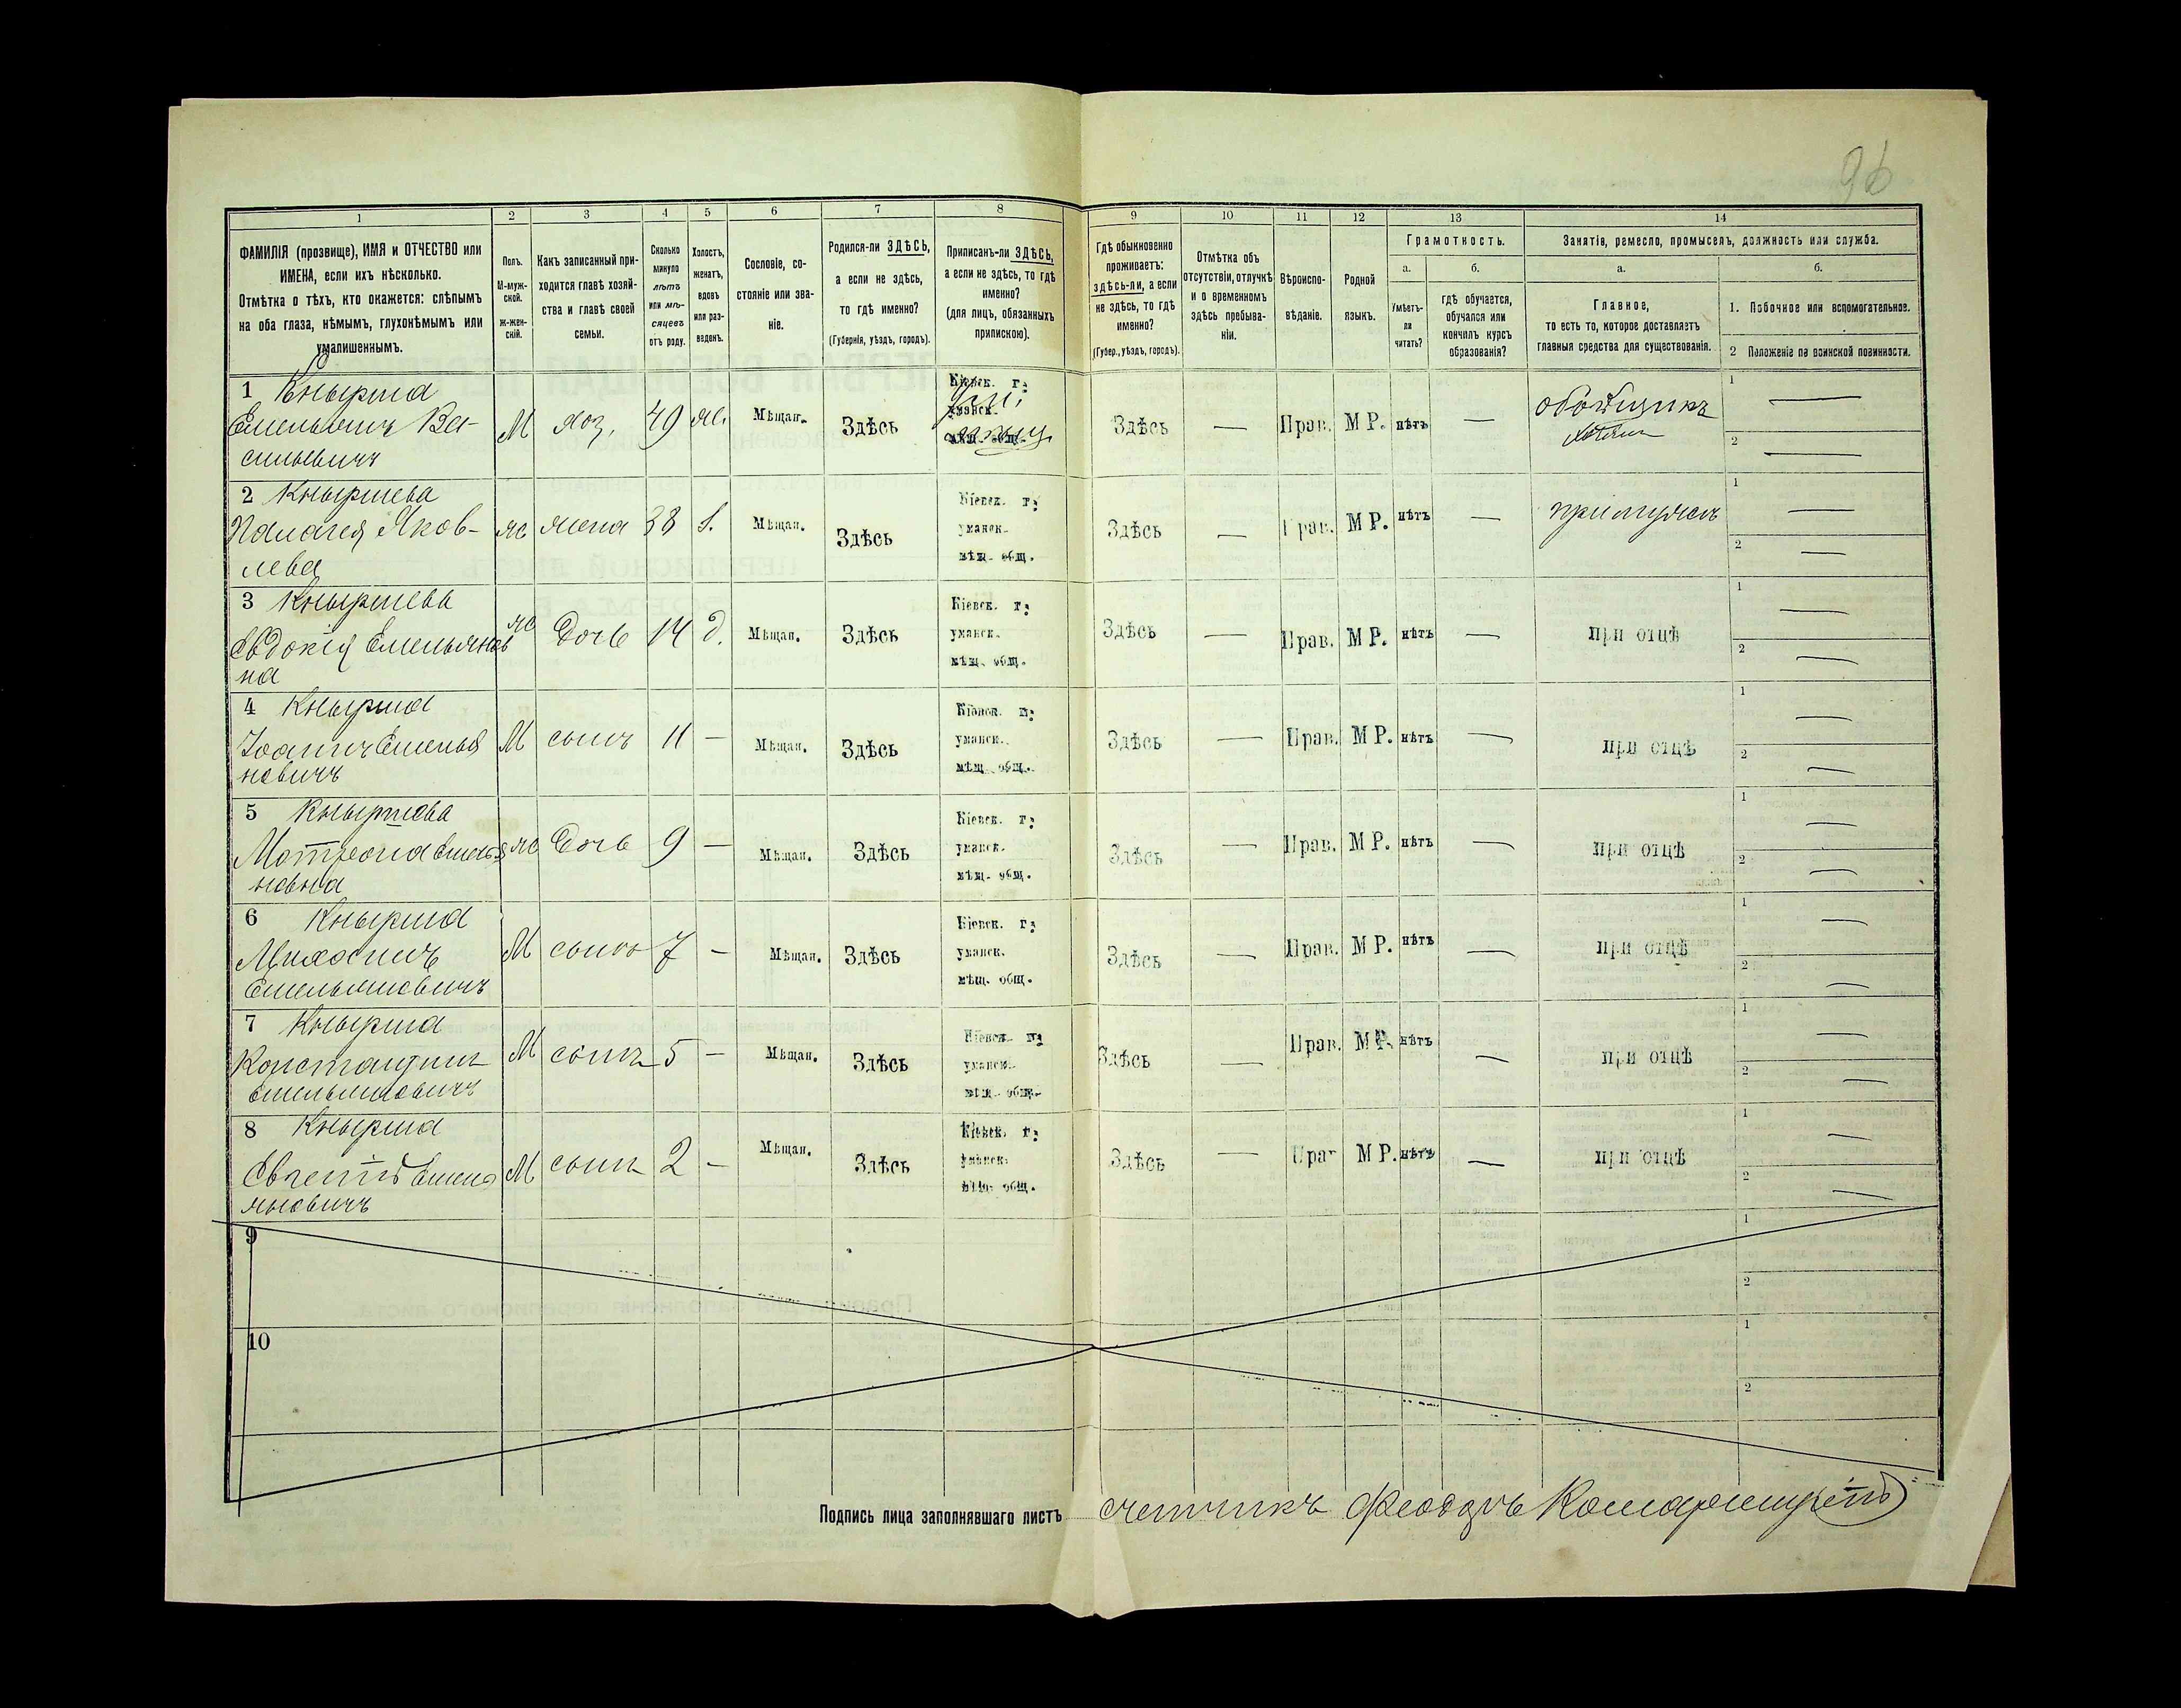 96
1 2 3 4 5 6 7 8 9 10 11 12 13 14
ФАМИЛІЯ (прозвище), ИМЯ и ОТЧЕСТВО или ИМЕНА, если ихъ нѣсколько.
Отмѣтка о тѣхъ, кто окажется: слѣпымъ на оба глаза, нѣмымъ, глухонѣмымъ или умалишеннымъ.
Полъ. М-мужской. Ж-женскій.
Какъ записанный приходится главѣ хозяйства и главѣ своей семьи.
Сколько минуло лѣтъ или мѣсяцевъ отъ роду.
Холостъ, женатъ, вдовъ или разведенъ.
Сословіе, состояніе или званіе.
Родился-ли ЗДѢСЬ, а если не здѣсь, то гдѣ именно?
(Губернія, уѣздъ, городъ).
Приписанъ-ли ЗДѢСЬ, а если не здѣсь, то гдѣ именно?
(для лицъ, обязанныхъ припискою).
Гдѣ обыкновенно проживаетъ: здѣсь-ли, а если не здѣсь, то гдѣ именно?
(Губер., уѣздъ, городъ).
Отмѣтка объ отсутствіи, отлучкѣ и о временномъ здѣсь пребываніи.
Вѣроисповѣданіе.
Родной языкъ.
Грамотность.
а. Умѣетъ-ли читать?
б. гдѣ обучается, обучался или кончилъ курсъ образованія?
Занятіе, ремесло, промыселъ, должность или служба.
а. Главное, то есть то, которое доставляетъ главныя средства для существованія.
б. 1. Побочное или вспомогательное.
2 Положеніе по воинской повинности.
1 Кнырша
Емельянъ Ва-
сильевичъ
М хоз. 49 ж. Мѣщан. Здѣсь Кіевск. г: уманск. мѣщ. общ. Здѣсь — Прав. М Р. нѣтъ — 1 — 2 —
2 Кныршева
Палагея Яков-
лева
ж жена 38 з. Мѣщан. Здѣсь Кіевск. г: уманск. мѣщ. общ. Здѣсь — Прав. М Р. нѣтъ — при мужѣ 1 — 2 —
3 Кныршева
Евдокія Емельянов
на
ж дочь 14 д. Мѣщан. Здѣсь Кіевск. г: уманск. мѣщ. общ. Здѣсь — Прав. М Р. нѣтъ — при отцѣ 1 — 2 —
4 Кнырша
Іоаннъ Емелья
новичъ
М сынъ 11 — Мѣщан. Здѣсь Кіевск. г: уманск. мѣщ. общ. Здѣсь — Прав. М Р. нѣтъ — при отцѣ 1 — 2 —
5 Кныршева
Матрона Емелья
новна
ж дочь 9 — Мѣщан. Здѣсь Кіевск. г: уманск. мѣщ. общ. Здѣсь — Прав. М Р. нѣтъ — при отцѣ 1 — 2 —
6 Кнырша
Михаилъ
Емельяновичъ
М сынъ 7 — Мѣщан. Здѣсь Кіевск. г: уманск. мѣщ. общ. Здѣсь — Прав. М Р. нѣтъ — при отцѣ 1 — 2 —
7 Кнырша
Константинъ
Емельяновичъ
М сынъ 5 — Мѣщан. Здѣсь Кіевск. г: уманск. мѣщ. общ. Здѣсь — Прав. М Р. нѣтъ — при отцѣ 1 — 2 —
8 Кнырша
Евгеній Емель
яновичъ
М сынъ 2 — Мѣщан. Здѣсь Кіевск. г: уманск. мѣщ. общ. Здѣсь — Прав М Р. нѣтъ — при отцѣ 1 — 2 —
9 1 2
10 1 2
Подпись лица заполнявшаго листъ счетчикъ Феодоръ